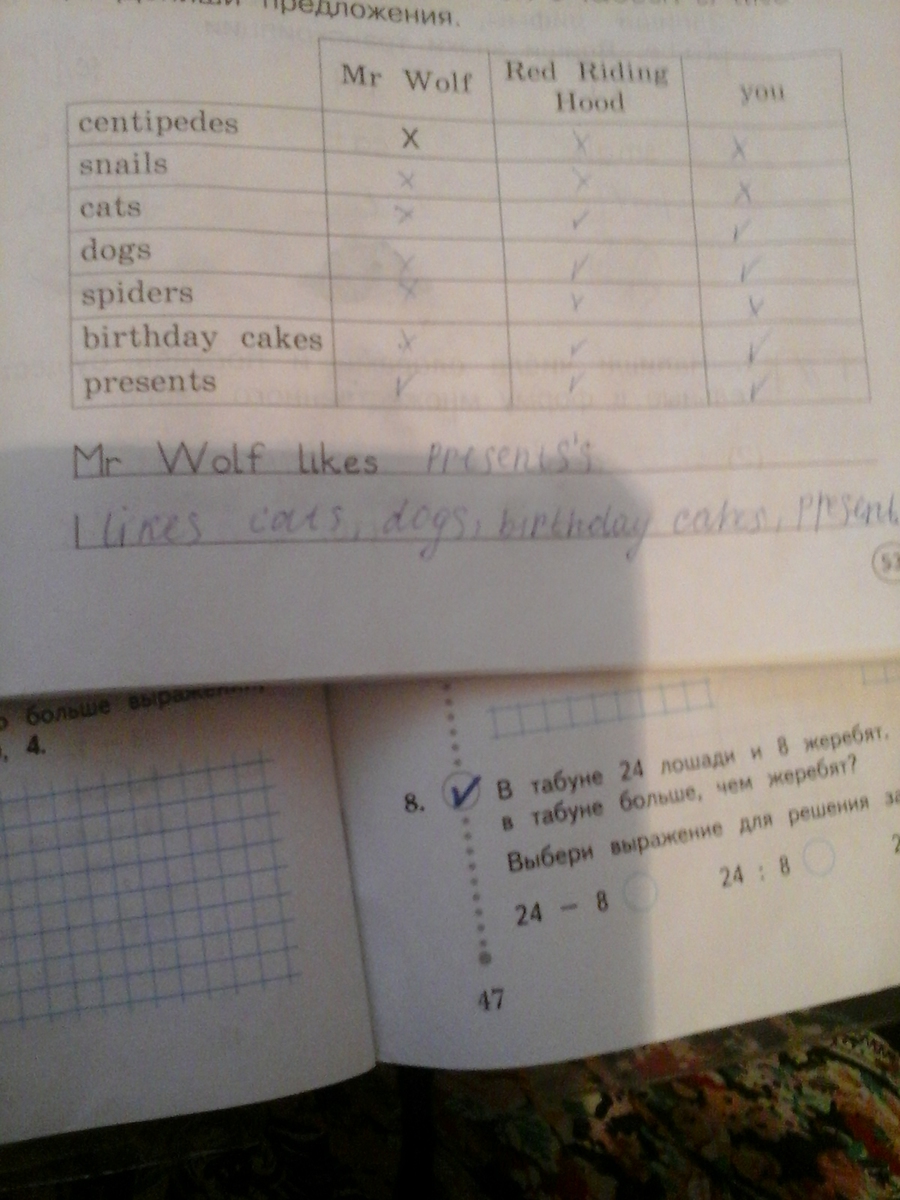 предложения.
Mr Wolf Red Riding Hood you
centipedes X X X
snails X X X
cats X ✓ ✓
dogs X ✓ ✓
spiders X ✓ ✓
birthday cakes X ✓ ✓
presents ✓ ✓ ✓
Mr Wolf likes presents's
I likes cats, dogs, birthday cakes, present
53
больше выражения,
, 4.
8. ✓ В табуне 24 лошади и 8 жеребят.
в табуне больше, чем жеребят?
Выбери выражение для решения за
24 – 8 24 : 8 2
47